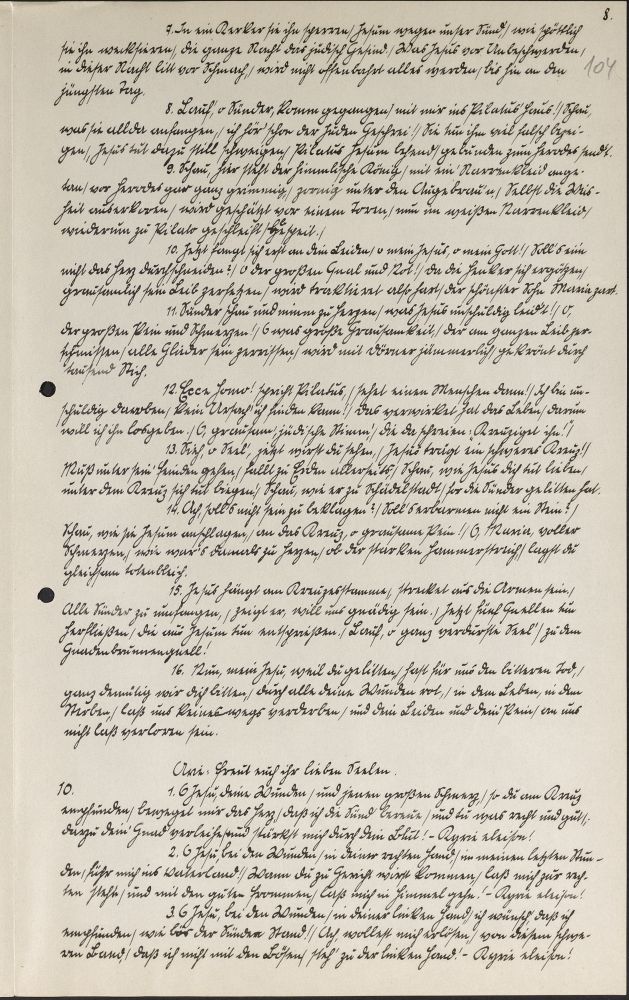 8.
104
7. In ein Kerker sie ihn sperren/ Jesum wegen unser Sünd/ wie spöttlich
sie ihn, die ganze Nacht das jüdisch Gesind./ Was Jesus vor Unbeschwerden,/
in dieser Nacht litt vor Schmach,/ wird nicht offenbahrt alles werden,/ bis hin an den
jüngsten Tag.
8. Lauf, o Sünder, komm gegangen/ mit mir ins Pilatus Haus!/ Schau,
was sie allda anfangen,/ ich hör' schon der Juden Geschrei!/ Sie tun ihm viel falsch bezei-
gen,/ Jesus tut dazu still schweigen,/ Pilatus Jesum gebunden zum Herodes sendt.
9. Schau, hier steht der himmlische König,/ mit ein' Narrenkleid ange-
tan,/ vor Herodes gar ganz grimmig,/ zornig unter den Augebrau'n,/ Selbst die Weis-
heit auserkoren,/ wird geschätzt vor einem Toren,/ nun im weißen Narrenkleid,/
wiederum zu Pilato geschleift/
10. Jetzt fangt sich erst an dein Leiden,/ o mein Jesus, o mein Gott!/ Soll's ein
nicht das Herz durchschneiden?/ O der großen Qual und Not!/ da die Henker sich ergötzen,/
grausamlich sein Leib zersetzen,/ wird traktieret also hart/ der schönster Sohn Maria zart.
11. Sünder schau und nimm zu Herzen,/ was Jesus unschuldig leidt!/ O,
der großen Pein und Schmerzen!/ O was große Grausamkeit,/ der am ganzen Leib zer-
schmissen,/ alle Glieder sein zerrissen,/ wird mit Dörner jämmerlich/ gekrönt durch
tausend Stich.
12. Ecce homo! spricht Pilatus,/ sehet einen Menschen dann!/ Ich bin un-
schuldig, kein Ursach' ich finden kann!/ das verwirket hat das Leben,/ darum
will ich ihn losgeben./ O, grausam, jüdische Stimm',/ die da schreien: Kreuziget ihn!"/
13. Sieh, o Seel', jetzt wirst du sehen,/ Jesus trägt ein schweres Kreuz!/
Muß unter sein' Feinden gehen,/ fallt zu Erden allerseits,/ Schau, wie Jesus dich tut lieben,/
unter dem Kreuz sich tut biegen,/ Schau, wie er zu Schädelstadt/ für die Sünder gelitten hat.
14. Ach, soll's nicht sein zu beklagen?/ Soll's erbarmen nicht ein Stein?/
Schau, wie sie Jesum anschlagen,/ an das Kreuz, o grausame Pein!/ O, Maria, voller
Schmerzen,/ wie war's damals zu Herzen,/ ob der starken Hammerstreich,/ lagst du
gleichsam totenbleich.
15. Jesus hängt am Kreuzesstamme,/ strecket aus die Armen sein,/
Alle Sünder zu umfangen,/ zeigt er, will uns gnädig sein./ Jetzt fünf Quellen tun
herfließen,/ die aus Jesum tun entsprießen./ Lauf, o ganz verdurste Seel'/ zu dem
Gnadenbrunnenquell!
16. Nun, mein Jesu, weil du gelitten,/ hast für uns den bitteren Tod,/
ganz demütig wir dich bitten,/ durch alle deine Wunden rot,/ in dem Leben, in dem
Sterben,/ laß uns keineswegs verderben,/ und dein Leiden und dein' Pein/ an uns
nicht laß verloren sein.
Arie: Freut euch ihr lieben Seelen.
10.
1. O Jesu, deine Wunden,/ und jenen großen Schmerz,/ so du am Kreuz
empfunden,/ beweget mir das Herz,/ daß ich die Sünd' bereue,/ und tu was recht und gut;/
dazu dein' Gnad' verleihe/ und stärkst mich durch dein Blut! - Kyrie eleison!
2. O Jesu, bei den Wunden/ in deiner rechten Hand,/ in meinen letzten Stun-
den,/ führ mich ins Vaterland!/ Wann du zu Gericht wirst kommen,/ laß mich zur rech-
ten stehn,/ und mit den guten Frommen,/ laß mich in Himmel gehn! - Kyrie eleison!
3. O Jesu, bei den Wunden/ in deiner linken Hand,/ ich wünsch', daß ich
empfunden,/ wie bös der Sünden Stand!/ Ach wollest mich erlösen,/ von diesem schwe-
ren Band,/ daß ich nicht mit den Bösen,/ steh' zu der linken Hand! - Kyrie eleison!